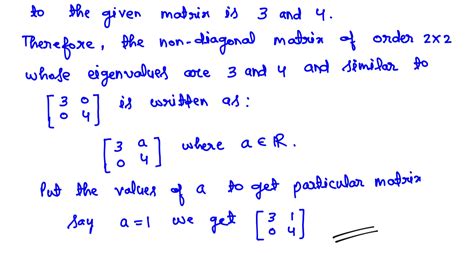 to the given matrix is 3 and 4.
Therefore, the non-diagonal matrix of order 2x2
whose eigenvalues are 3 and 4 and similar to
[3 0
0 4] is written as:
[3 a
0 4] where a ∈ ℝ.
Put the values of a to get particular matrix
say a = 1 we get [3 1
0 4]